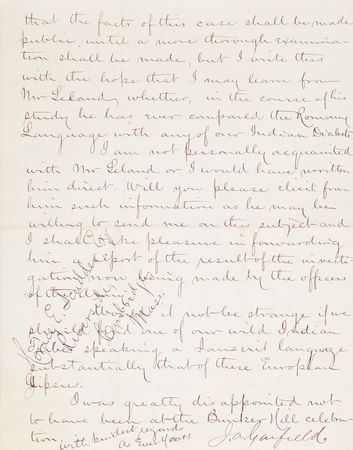 that the facts of this case shall be made
public, until a more thorough examina-
tion shall be made, but I write this
with the hope that I may learn from
Mr Leland, whether, in the course of his
study he has ever compared the Romany
Language with any of our Indian Dialects
I am not personally acquainted
with Mr Leland or I would have written
him direct. Will you please elicit from
him such information as he may be
willing to send me on the subject and
I shall take pleasure in forwarding
him a report of the result of the investi-
gation now being made by the officers
of the
it not be strange if we
find one of our wild Indian
speaking a Sanscrit language
substantially that of these European
Gipsies.
I was greatly disappointed not
to have been at the Bunker Hill celebra-
tion.
with kindest regards
as Ever Yours
J. A. Garfield
E. Scudder
Cambridge
Mass.